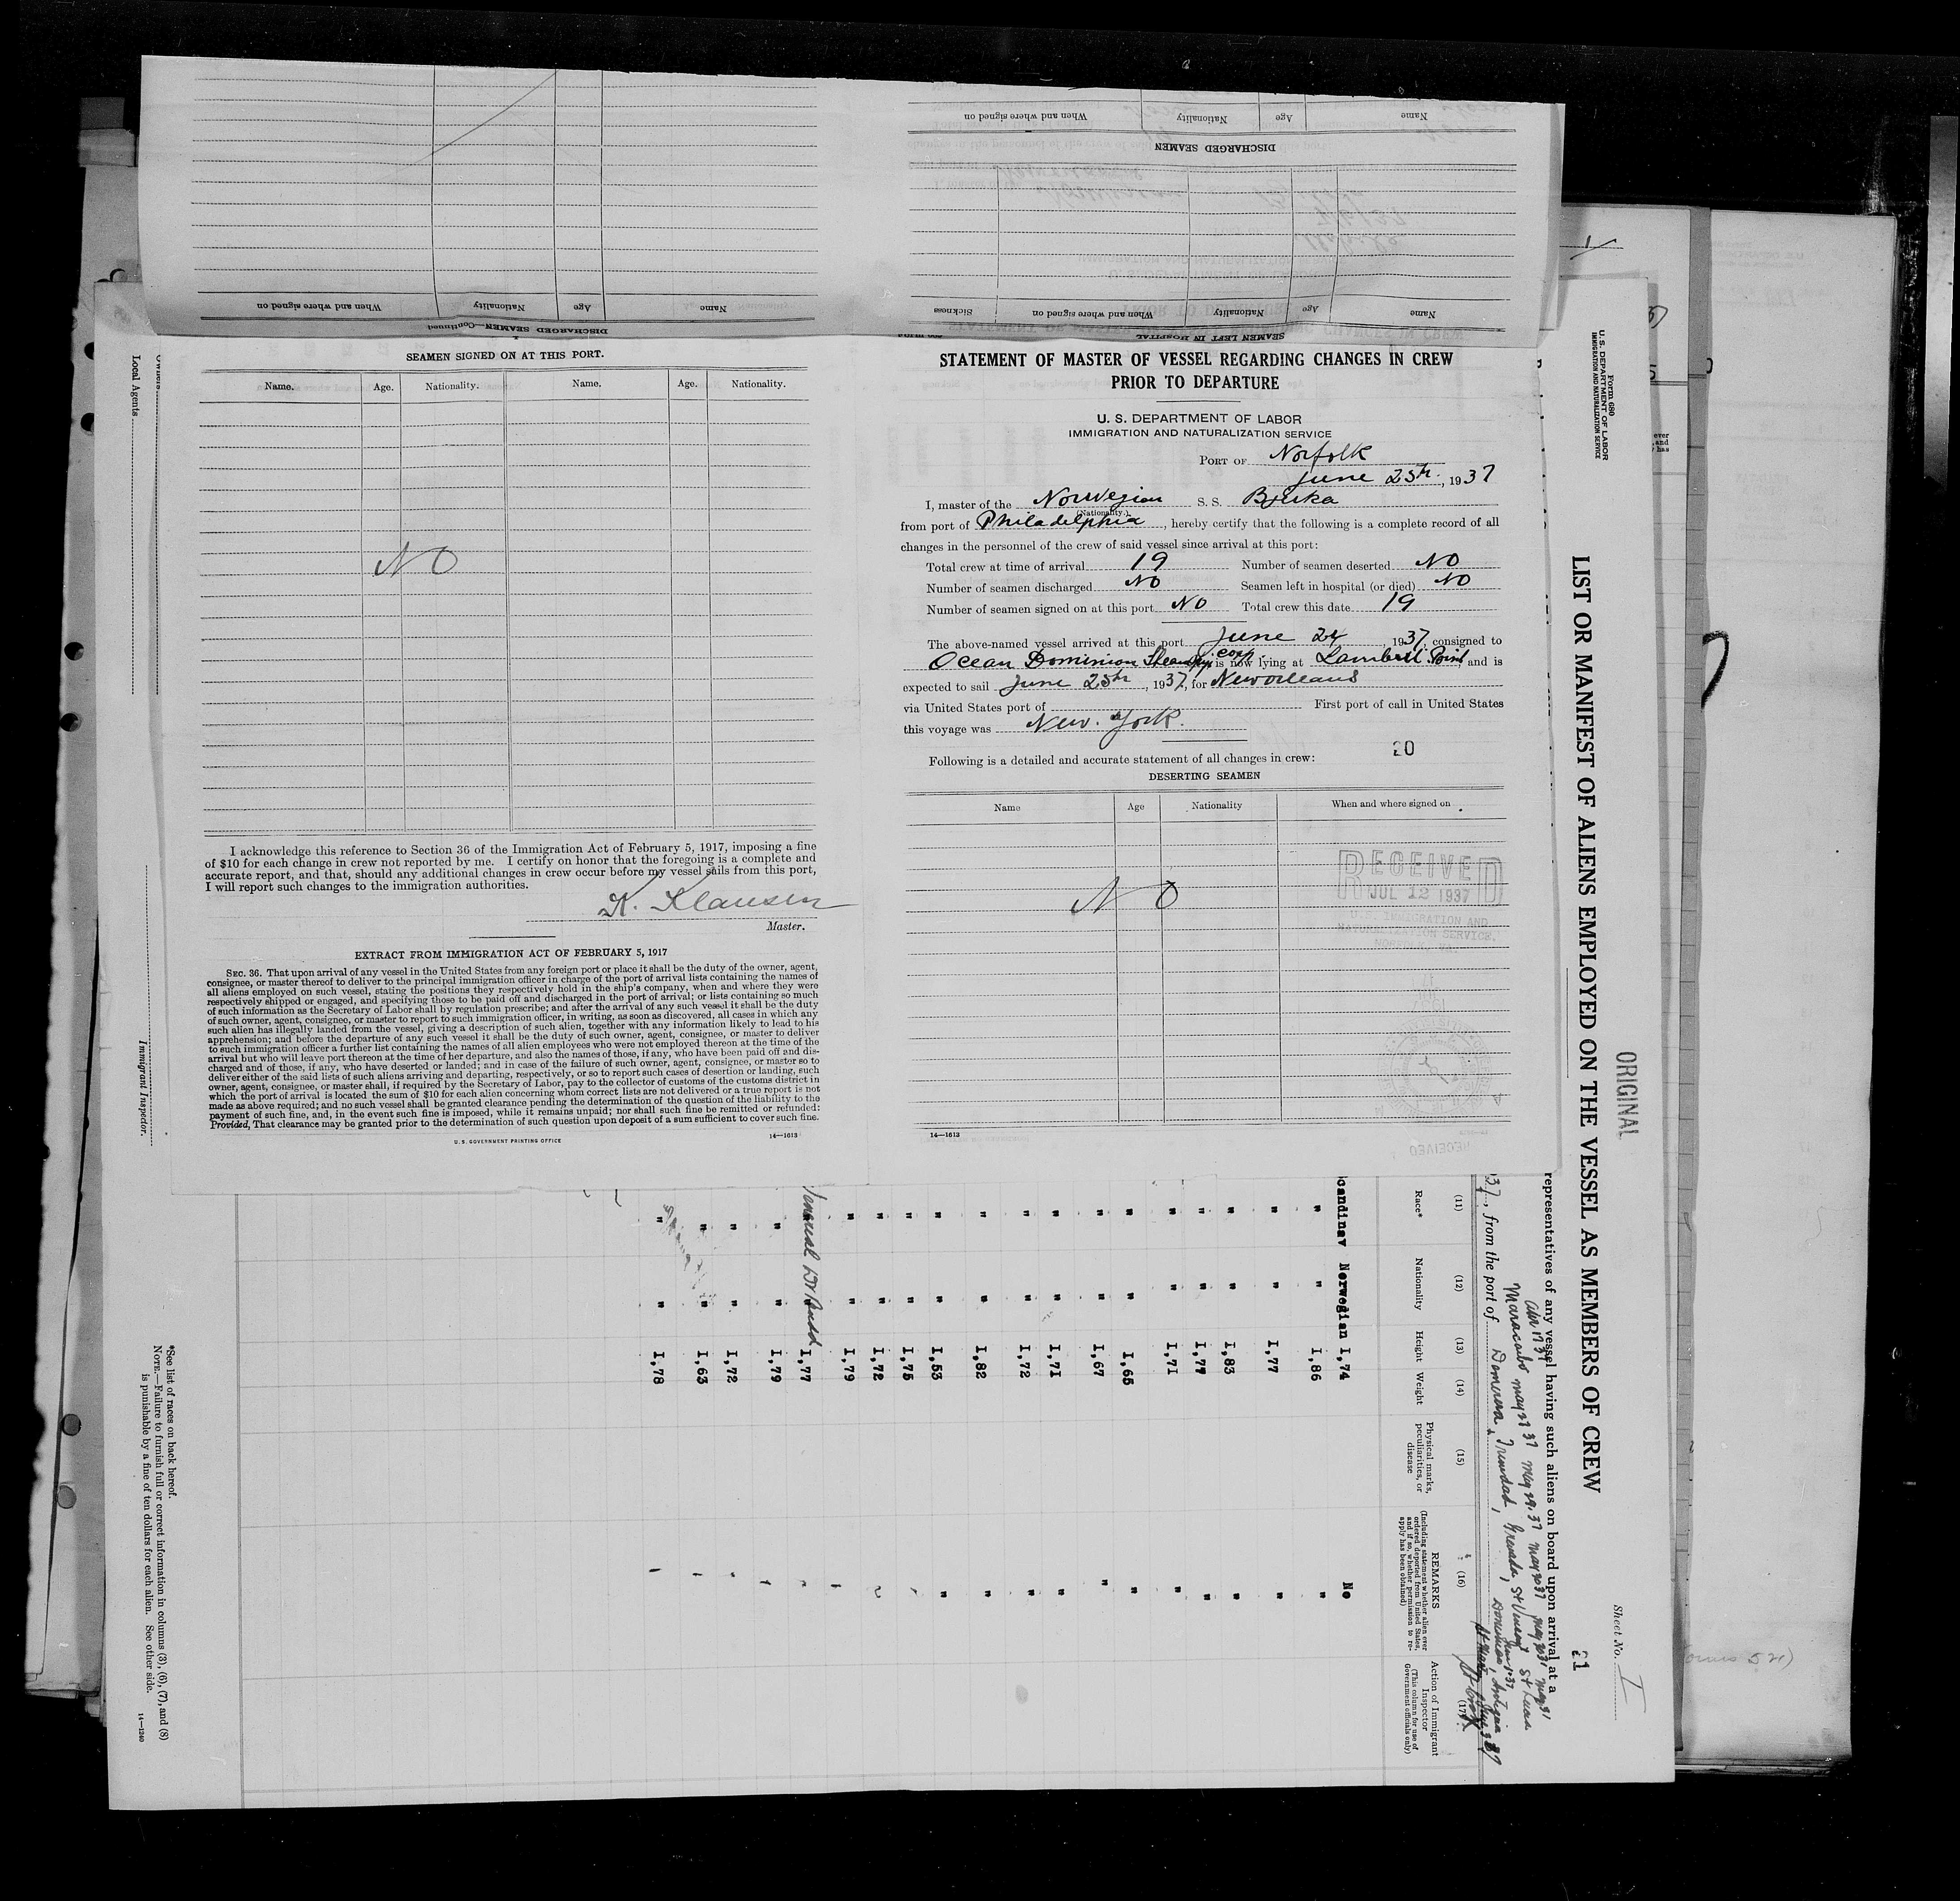 DISCHARGED SEAMEN—Continued
Name
Age
Nationality
When and where signed on
DISCHARGED SEAMEN
Name
Age
Nationality
When and where signed on
SEAMEN LEFT IN HOSPITAL
Name
Age
Nationality
When and where signed on
Sickness
SEAMEN SIGNED ON AT THIS PORT.
Name. Age. Nationality. Name. Age. Nationality.
NO
I acknowledge this reference to Section 36 of the Immigration Act of February 5, 1917, imposing a fine
of $10 for each change in crew not reported by me. I certify on honor that the foregoing is a complete and
accurate report, and that, should any additional changes in crew occur before my vessel sails from this port,
I will report such changes to the immigration authorities.
K. Klausen
Master.
EXTRACT FROM IMMIGRATION ACT OF FEBRUARY 5, 1917
SEC. 36. That upon arrival of any vessel in the United States from any foreign port or place it shall be the duty of the owner, agent,
consignee, or master thereof to deliver to the principal immigration officer in charge of the port of arrival lists containing the names of
all aliens employed on such vessel, stating the positions they respectively hold in the ship's company, when and where they were
respectively shipped or engaged, and specifying those to be paid off and discharged in the port of arrival; or lists containing so much
of such information as the Secretary of Labor shall by regulation prescribe; and after the arrival of any such vessel it shall be the duty
of such owner, agent, consignee, or master to report to such immigration officer, in writing, as soon as discovered, all cases in which any
such alien has illegally landed from the vessel, giving a description of such alien, together with any information likely to lead to his
apprehension; and before the departure of any such vessel it shall be the duty of such owner, agent, consignee, or master to deliver
to such immigration officer a further list containing the names of all alien employees who were not employed thereon at the time of the
arrival but who will leave port thereon at the time of her departure, and also the names of those, if any, who have been paid off and dis-
charged and of those, if any, who have deserted or landed; and in case of the failure of such owner, agent, consignee, or master so to
deliver either of the said lists of such aliens arriving and departing, respectively, or so to report such cases of desertion or landing, such
owner, agent, consignee, or master shall, if required by the Secretary of Labor, pay to the collector of customs of the customs district in
which the port of arrival is located the sum of $10 for each alien concerning whom correct lists are not delivered or a true report is not
made as above required; and no such vessel shall be granted clearance pending the determination of the question of the liability to the
payment of such fine, and, in the event such fine is imposed, while it remains unpaid; nor shall such fine be remitted or refunded:
Provided, That clearance may be granted prior to the determination of such question upon deposit of a sum sufficient to cover such fine.
U. S. GOVERNMENT PRINTING OFFICE
14—1613
STATEMENT OF MASTER OF VESSEL REGARDING CHANGES IN CREW
PRIOR TO DEPARTURE
U. S. DEPARTMENT OF LABOR
IMMIGRATION AND NATURALIZATION SERVICE
PORT OF Norfolk
June 25th, 1937
I, master of the Norwegian S. S. Bjurka
(Nationality.)
from port of Philadelphia, hereby certify that the following is a complete record of all
changes in the personnel of the crew of said vessel since arrival at this port:
Total crew at time of arrival 19 Number of seamen deserted NO
Number of seamen discharged NO Seamen left in hospital (or died) NO
Number of seamen signed on at this port NO Total crew this date 19
The above-named vessel arrived at this port June 24, 1937, consigned to
Ocean Dominion Steamship Corp. is now lying at Lambert Point and is
expected to sail June 25th, 1937, for New Orleans
via United States port of First port of call in United States
this voyage was New York.
20
Following is a detailed and accurate statement of all changes in crew:
DESERTING SEAMEN
Name Age Nationality When and where signed on
NO
RECEIVED
JUL 12 1937
U. S. IMMIGRATION AND
NATURALIZATION SERVICE,
14—1613
RECEIVED
Form 680
U. S. DEPARTMENT OF LABOR
IMMIGRATION AND NATURALIZATION SERVICE
ORIGINAL
Sheet No. I
LIST OR MANIFEST OF ALIENS EMPLOYED ON THE VESSEL AS MEMBERS OF CREW
21
representatives of any vessel having such aliens on board upon arrival at a
Maracaibo may 27 37 may 29.37
37, from the port of Demerara, Trinidad, Grenada, St Vincent, St Lucia
Dominica, Antigua
(11) (12) (13) (14) (15) (16) (17)
Race* Nationality Height Weight Physical marks, peculiarities, or disease
REMARKS
(Including statement whether alien ever ordered deported from United States, and if so, whether permission to re-apply has been obtained)
Action of Immigrant Inspector
(This column for use of Government officials only)
candinav Norwegian 1,74 No
" " 1,86 "
" " 1,77 "
" " 1,83 "
" " 1,79 "
" " 1,71 "
" " 1,65 "
" " 1,67 "
" " 1,71 "
" " 1,72 "
" " 1,82 "
" " 1,53 "
" " 1,75
" " 1,72
" " 1,79
1,77
" " 1,79
" " 1,72
" " 1,63
" " 1,78
Local Agents
Immigrant Inspector.
*See list of races on back hereof.
NOTE.—Failure to furnish full or correct information in columns (3), (6), (7), and (8)
is punishable by a fine of ten dollars for each alien. See other side.
14—1240